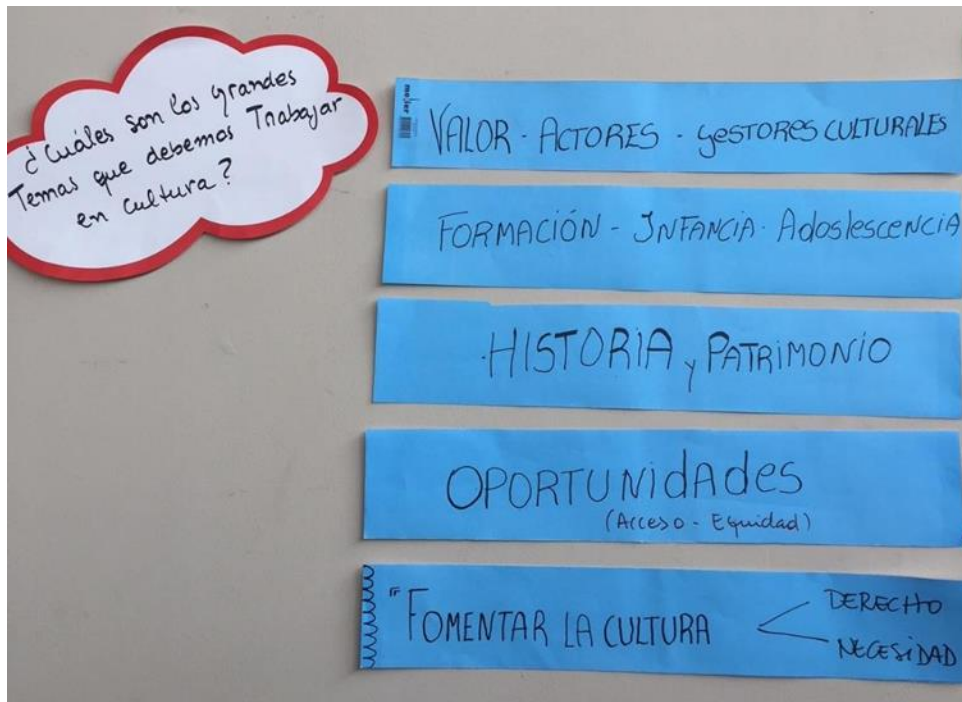 ¿Cuáles son los grandes
Temas que debemos Trabajar
en cultura?
VALOR - ACTORES - gESTORES CULTURALES
FORMACIÓN - INFANCIA - AdoslescENCiA
HISTORIA y PATRIMONIO
OPORTUNidAdes
(Acceso - Equidad)
"FOMENTAR LA CULTURA
DERECHO
NECESIDAD